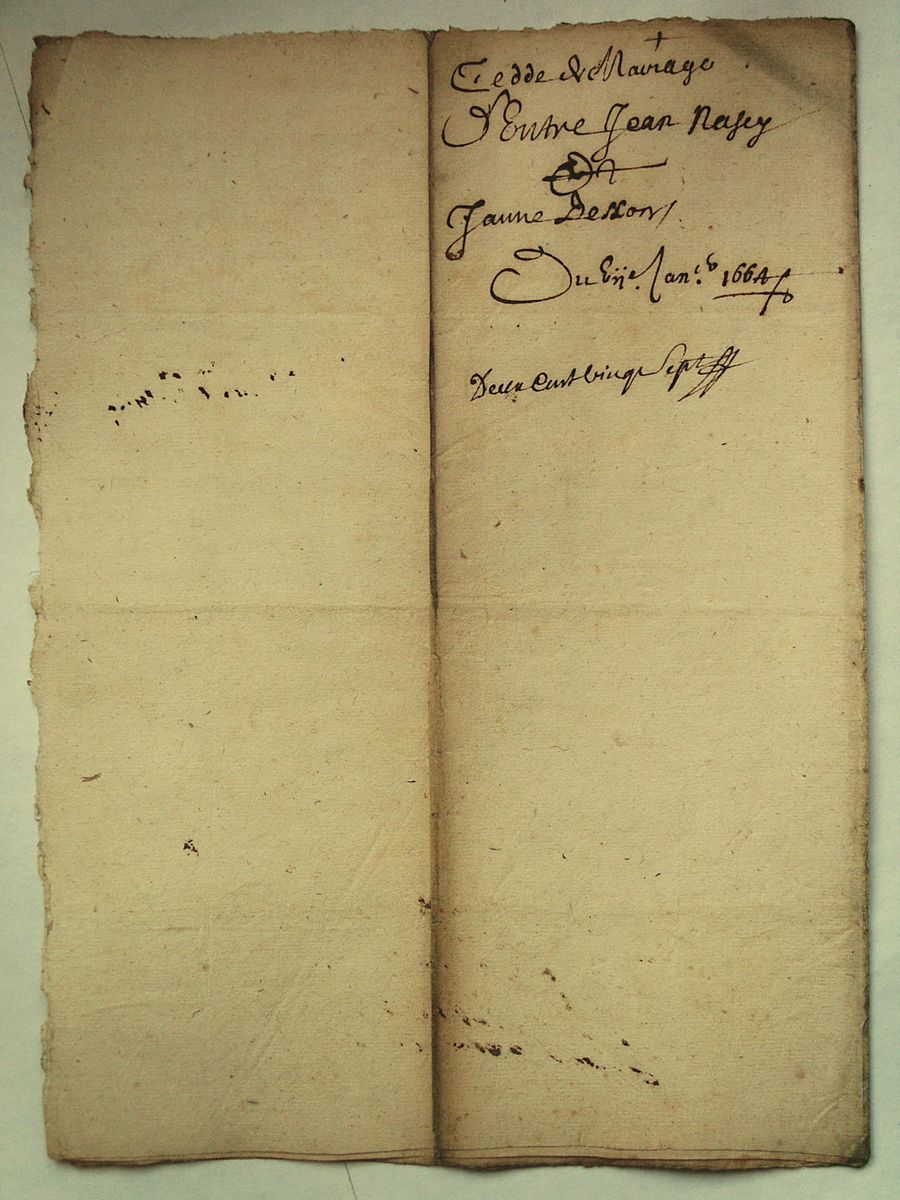 Cedde de Mariage
D'Entre Jean Rasey
Et
Janne Dessons
Du vije. Janer. 1664
Deux Cent vingt Sept